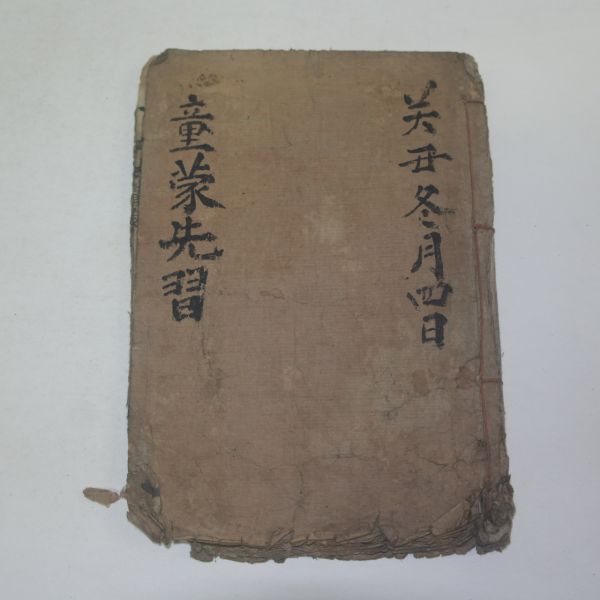 癸丑冬月四日
童蒙先習